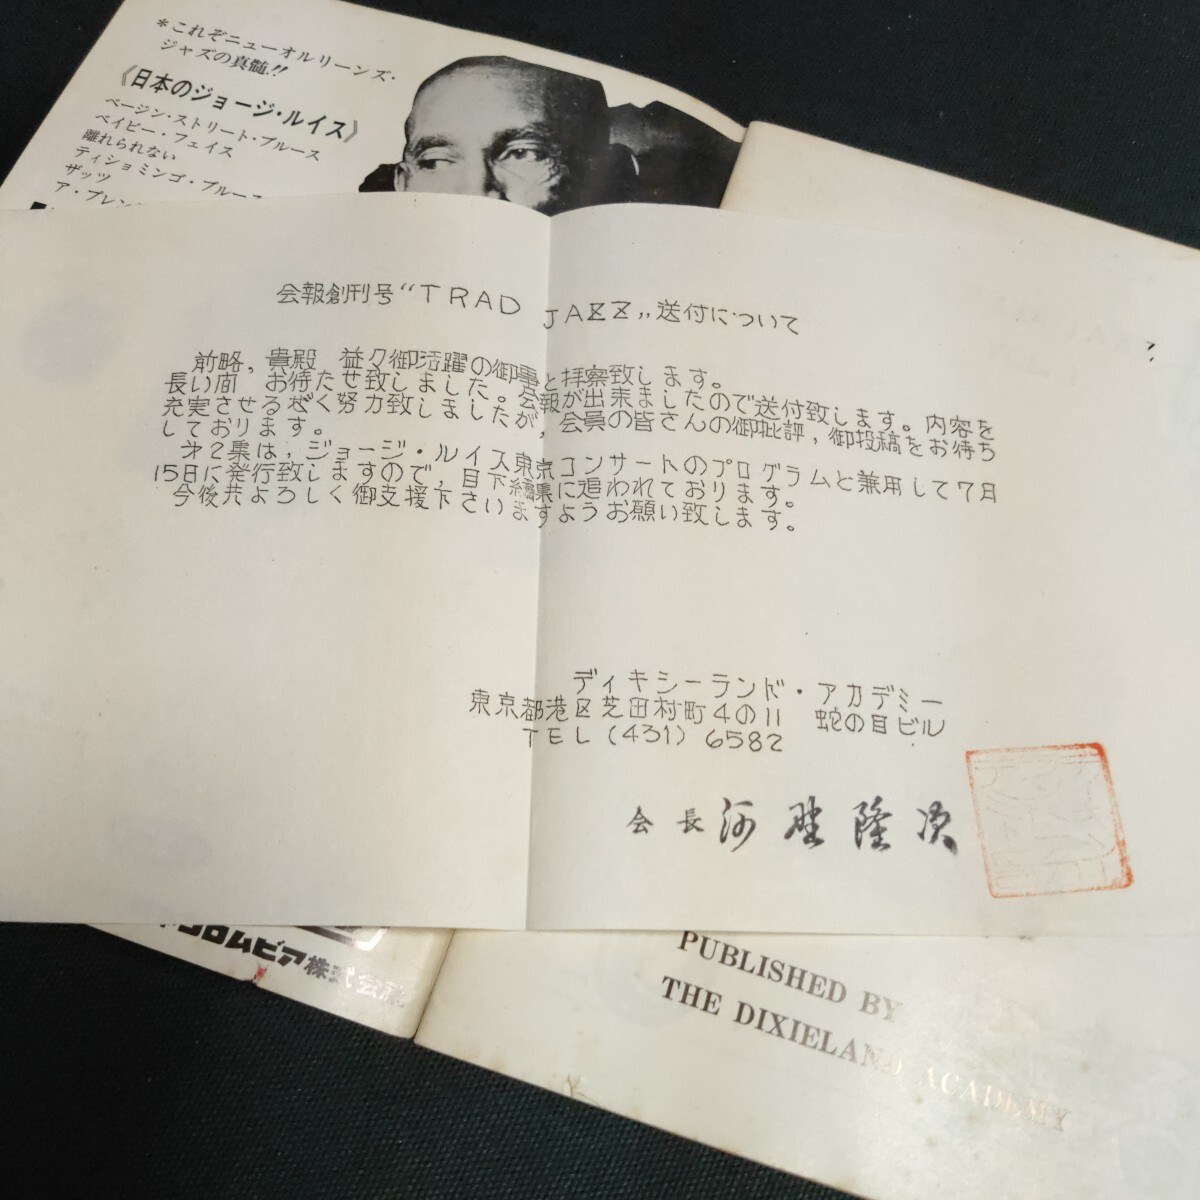 *これぞニューオルリーンズ・
ジャズの真髄!!
《日本のジョージ・ルイス》
ベージン・ストリート・ブルース
ベイビー・フェイス
離れられない
ティショミンゴ・ブルース
ザッツ
ア・プレン
会報創刊号“TRAD JAZZ„送付について
前略, 貴殿 益々御活躍の御事と拝察致します。
長い間 お待たせ致しました。会報が出来ましたので送付致します。内容を
充実させるべく努力致しましたが, 会員の皆さんの御批評, 御投稿をお待ち
しております。
才2集は, ジョージ・ルイス東京コンサートのプログラムと兼用して7月
15日に発行致しますので, 目下編集に追われております。
今後共よろしく御支援下さいますようお願い致します。
ディキシーランド・アカデミー
東京都港区芝田村町4の11 蛇の目ビル
TEL (431) 6582
会長 河野隆次
コロムビア株式会社
PUBLISHED BY
THE DIXIELAND ACADEMY